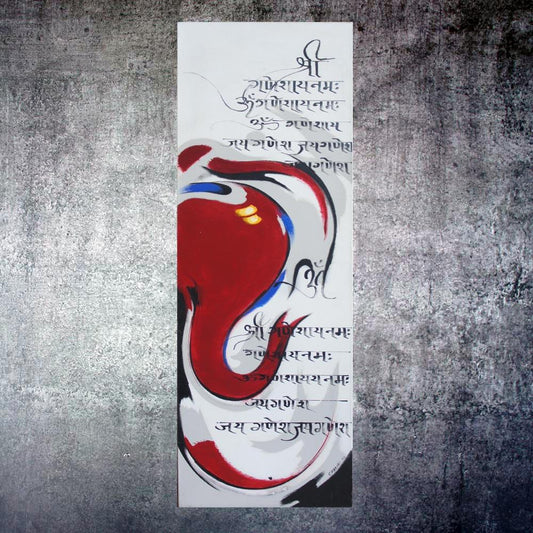 श्री
गणेशायनमः
ॐगणेशायनमः
ॐ गणेशाय
जय गणेश जयगणेश
जयगणेश
ॐ
श्री गणेशायनमः
गणेशायनमः
ॐगणेशायनमः
जयगणेश
जय गणेशजयगणेश